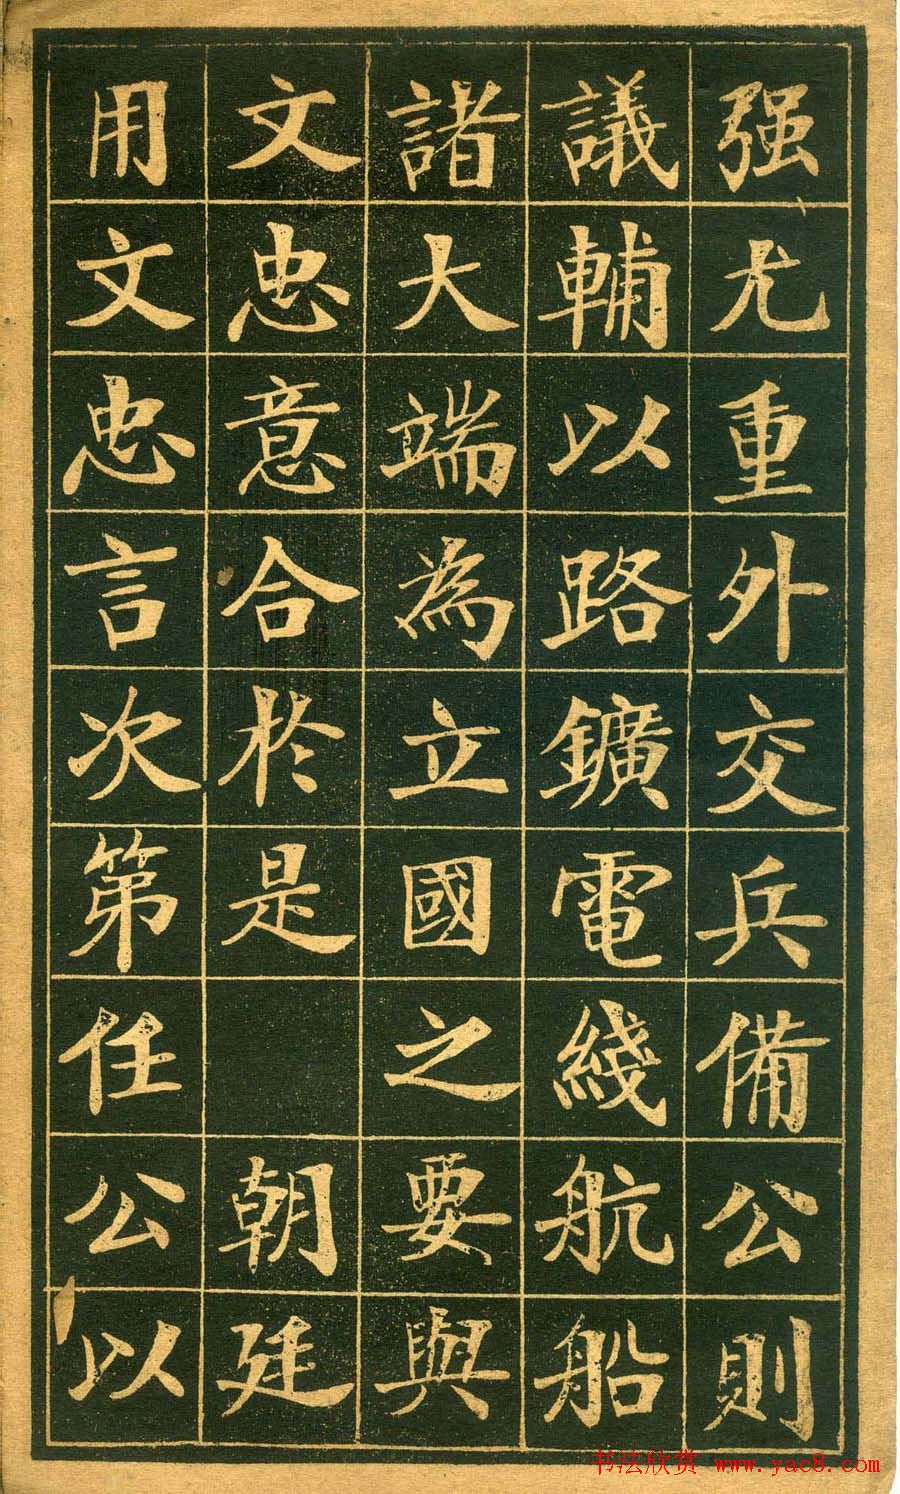 强尤重外交兵備公則
議輔以路鑛電綫航船
諸大端為立國之要與
文忠意合於是 朝廷
用文忠言次第任公以
书法欣赏 www.yac8.com